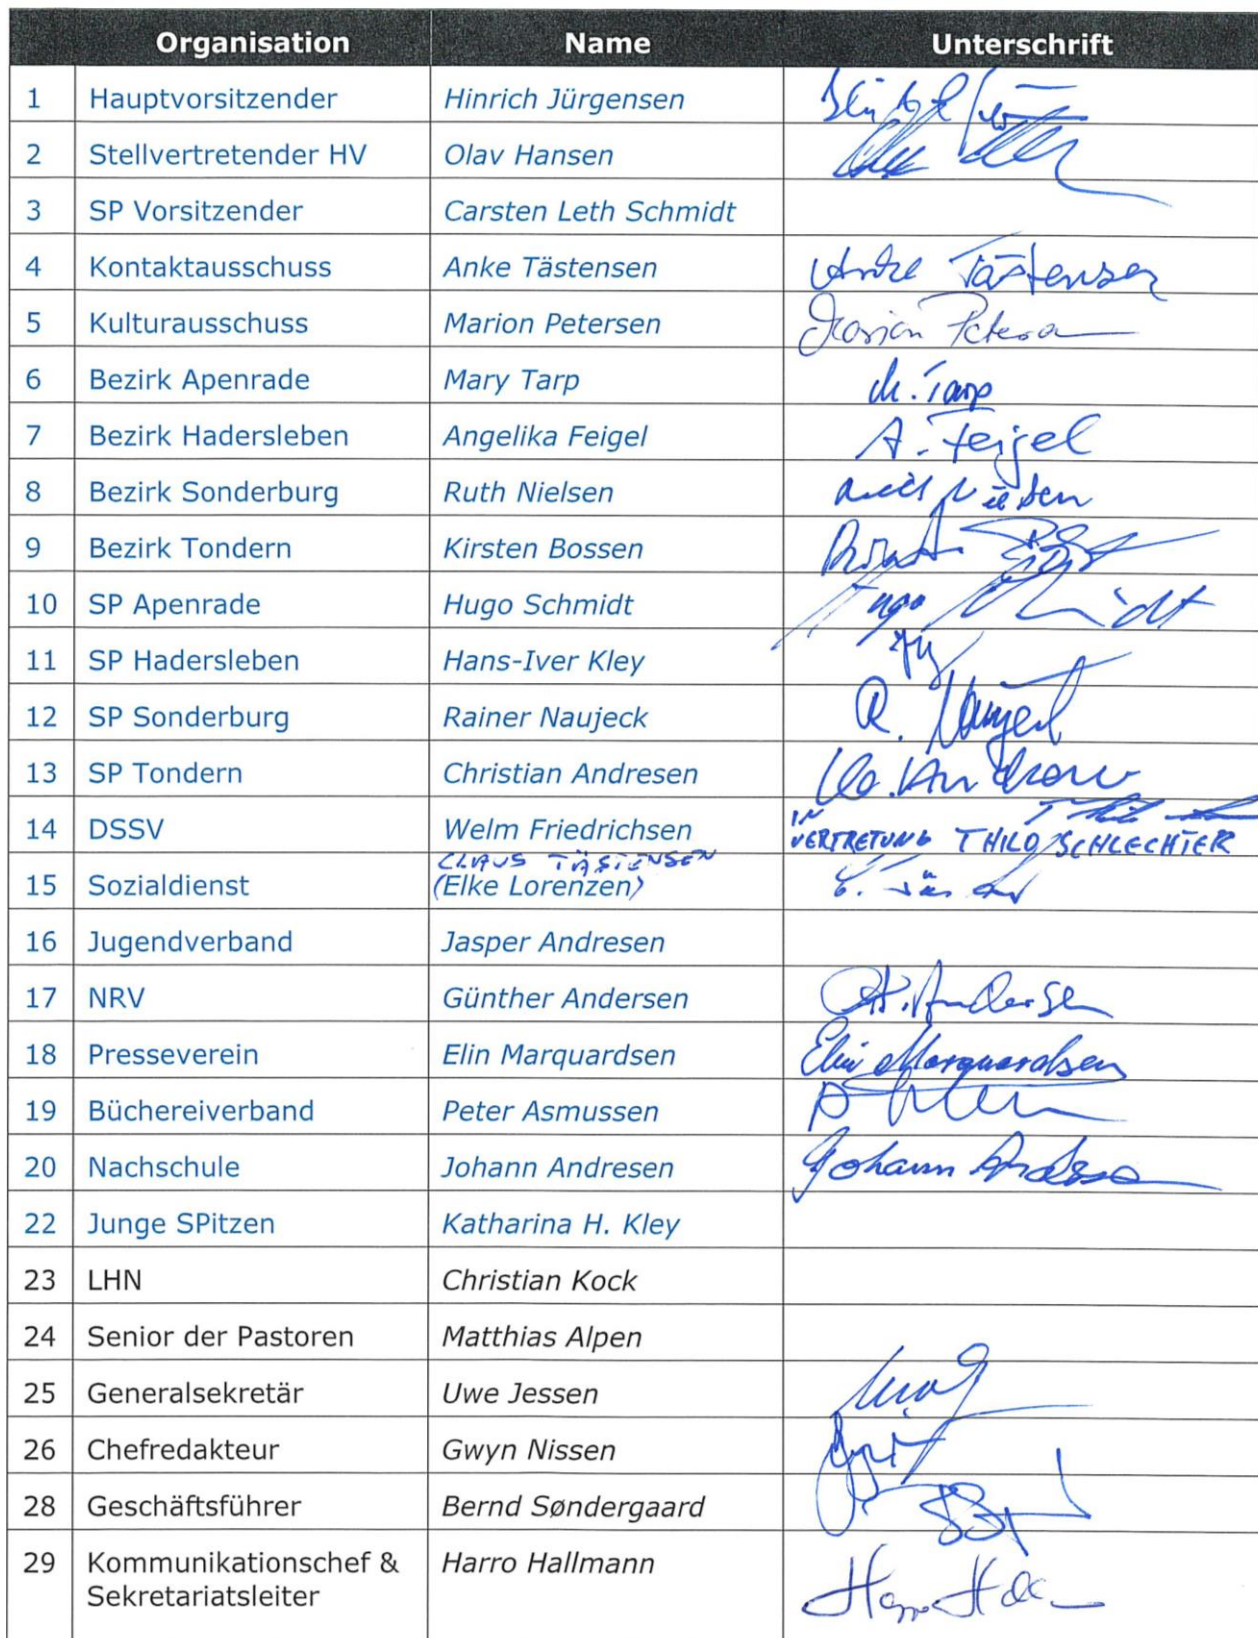 Organisation Name Unterschrift
1 Hauptvorsitzender Hinrich Jürgensen
2 Stellvertretender HV Olav Hansen
3 SP Vorsitzender Carsten Leth Schmidt
4 Kontaktausschuss Anke Tästensen Anke Tästensen
5 Kulturausschuss Marion Petersen Marion Petersen
6 Bezirk Apenrade Mary Tarp M. Tarp
7 Bezirk Hadersleben Angelika Feigel A. Feigel
8 Bezirk Sonderburg Ruth Nielsen Ruth Nielsen
9 Bezirk Tondern Kirsten Bossen
10 SP Apenrade Hugo Schmidt Hugo Schmidt
11 SP Hadersleben Hans-Iver Kley
12 SP Sonderburg Rainer Naujeck R. Naujeck
13 SP Tondern Christian Andresen
14 DSSV Welm Friedrichsen IN
VERTRETUNG THILO SCHLECHTER
CLAUS TÄSTENSEN
15 Sozialdienst (Elke Lorenzen)
16 Jugendverband Jasper Andresen
17 NRV Günther Andersen
18 Presseverein Elin Marquardsen Elin Marquardsen
19 Büchereiverband Peter Asmussen
20 Nachschule Johann Andresen Johann Andresen
22 Junge SPitzen Katharina H. Kley
23 LHN Christian Kock
24 Senior der Pastoren Matthias Alpen
25 Generalsekretär Uwe Jessen
26 Chefredakteur Gwyn Nissen
28 Geschäftsführer Bernd Søndergaard
29 Kommunikationschef & Harro Hallmann
Sekretariatsleiter